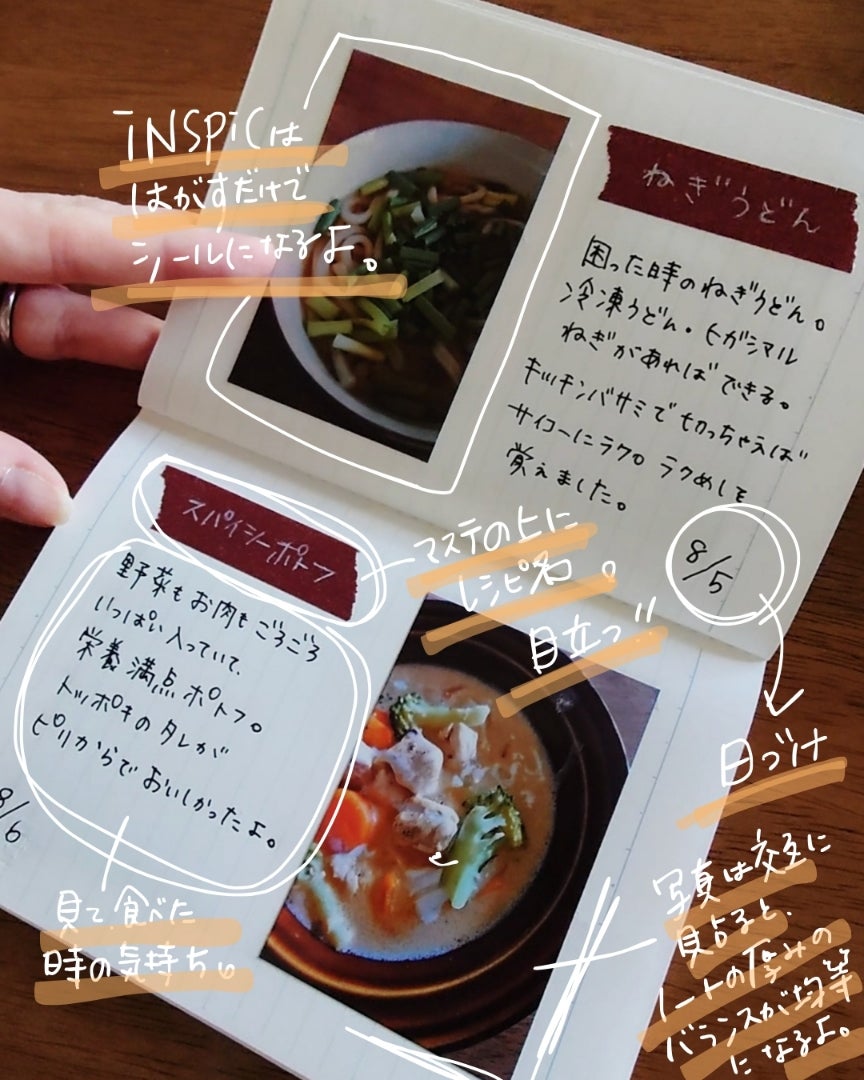 iNSPiCは
はがすだけで
シールになるよ。
ねぎうどん
困った時のねぎうどん。
冷凍うどん・ヒガシマル
ねぎがあればできる。
キッチンバサミで切っちゃえば
サイコーにラク。ラクめしを
覚えました。
8/5
日づけ
スパイシーポトフ
マステの上に
レシピ名。
目立つ!!
野菜もお肉もごろごろ
いっぱい入っていて、
栄養満点ポトフ。
トッポキのタレが
ピリからでおいしかったよ。
8/6
見て、食べた
時の気持ち。
写真は交互に
貼ると、
ノートの厚みの
バランスが均等
になるよ。